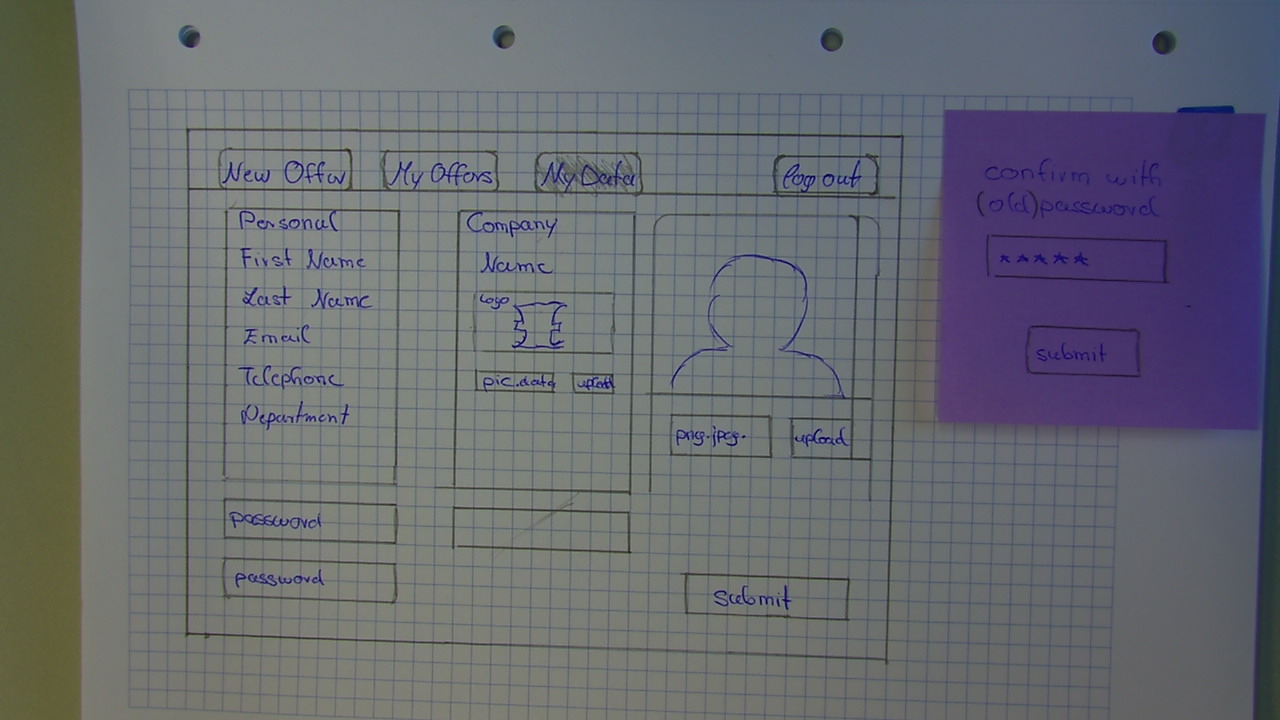 New Offer
My Offers
My Data
log out
Personal
First Name
Last Name
Email
Telephone
Department
password
password
Company
Name
Logo
pic.data
upload
png.jpeg.
upload
submit
confirm with
(old)password
*****
submit